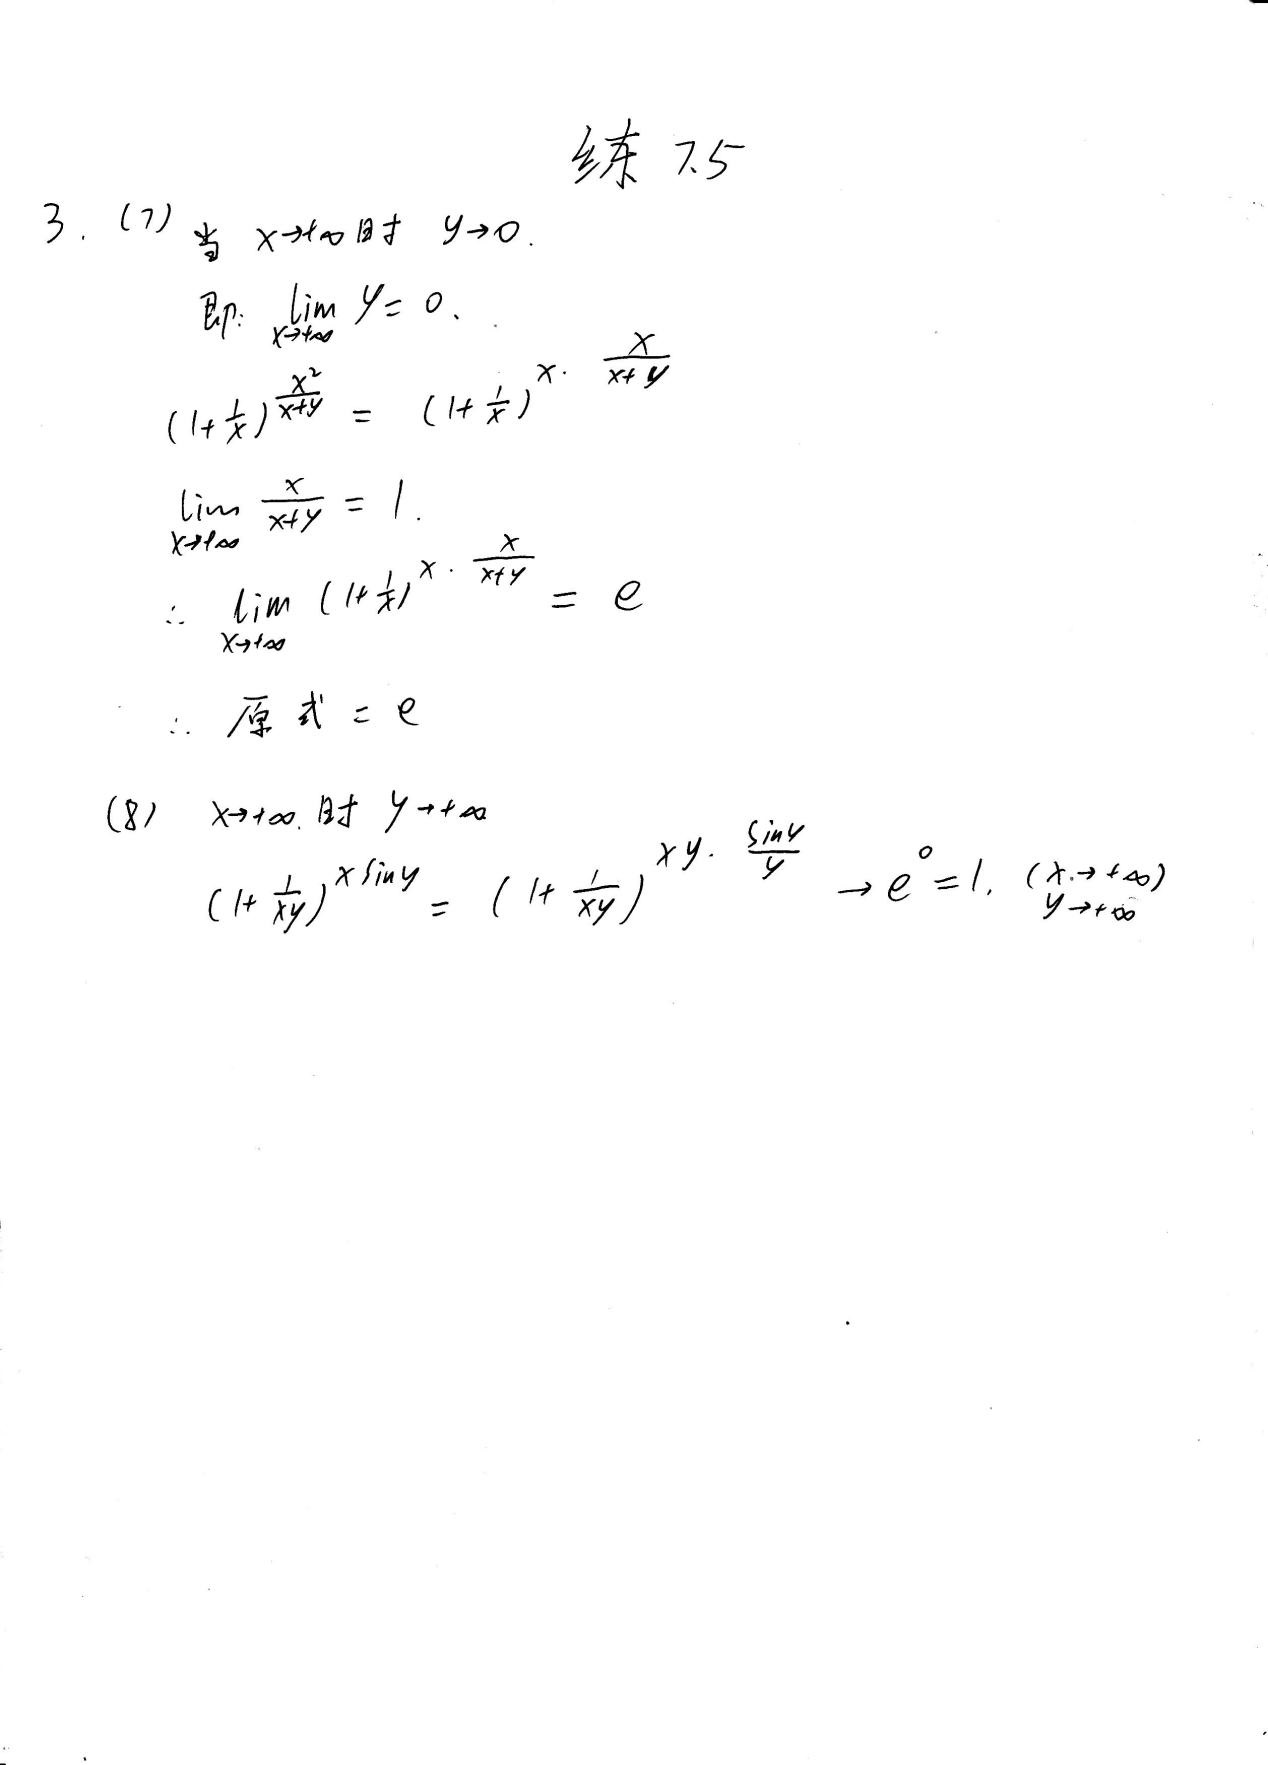 练 7.5
3. (7) 当 x→+∞时 y→0.
即: lim_{x→+∞} y = 0.
(1+\frac{1}{x})^{\frac{x^2}{x+y}} = (1+\frac{1}{x})^{x·\frac{x}{x+y}}
lim_{x→+∞} \frac{x}{x+y} = 1.
∴ lim_{x→+∞} (1+\frac{1}{x})^{x·\frac{x}{x+y}} = e
∴ 原式 = e
(8) x→+∞.时 y→+∞
(1+\frac{1}{xy})^{x sin y} = (1+\frac{1}{xy})^{xy·\frac{sin y}{y}} → e^0 = 1. (x→+∞ y→+∞)